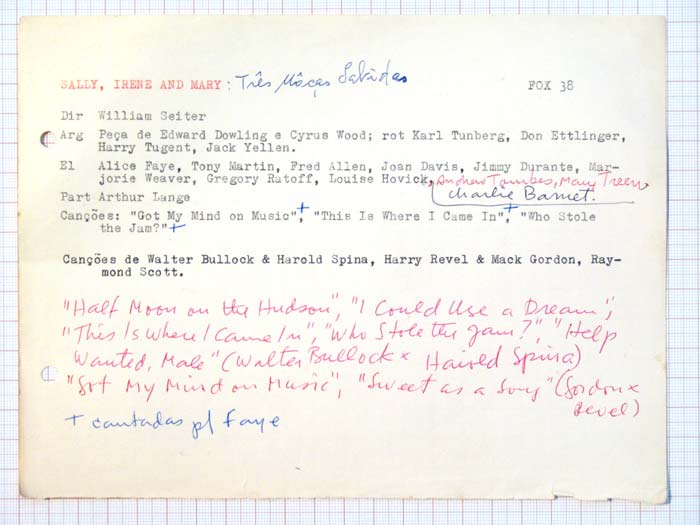 SALLY, IRENE AND MARY: Três Môças Sabidas FOX 38
Dir William Seiter
Arg Peça de Edward Dowling e Cyrus Wood; rot Karl Tunberg, Don Ettlinger,
Harry Tugent, Jack Yellen.
El Alice Faye, Tony Martin, Fred Allen, Joan Davis, Jimmy Durante, Mar-
jorie Weaver, Gregory Ratoff, Louise Hovick, Andrew Tombes, Mary Treen,
Charlie Barnet.
Part Arthur Lange
Canções: "Got My Mind on Music",+ "This Is Where I Came In",+ "Who Stole
the Jam?"+
Canções de Walter Bullock & Harold Spina, Harry Revel & Mack Gordon, Ray-
mond Scott.
"Half Moon on the Hudson", "I Could Use a Dream",
"This Is Where I Came In", "Who Stole the Jam?", "Help
Wanted, Male" (Walter Bullock x Harold Spina)
"Got My Mind on Music", "Sweet as a Song" (Gordon x
Revel)
+ cantadas p/ Faye